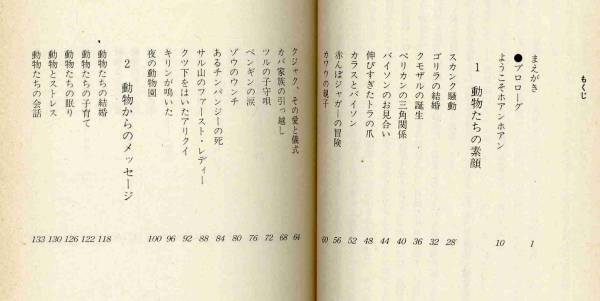 もくじ
まえがき 1
●プロローグ
ようこそホアンホアン 10
1 動物たちの素顔
スカンク騒動 28
ゴリラの結婚 32
クモザルの誕生 36
ペリカンの三角関係 40
バイソンのお見合い 44
伸びすぎたトラの爪 48
カラスとバイソン 52
赤んぼジャガーの冒険 56
カワウの親子 60
クジャク、その愛と儀式 64
カバ家族の引っ越し 68
ツルの子守唄 72
ペンギンの涙 76
ゾウのウンチ 80
あるチンパンジーの死 84
サル山のファースト・レディー 88
クツ下をはいたアリクイ 92
キリンが鳴いた 96
夜の動物園 100
2 動物からのメッセージ
動物たちの結婚 118
動物たちの子育て 122
動物たちの眠り 126
動物とストレス 130
動物たちの会話 133